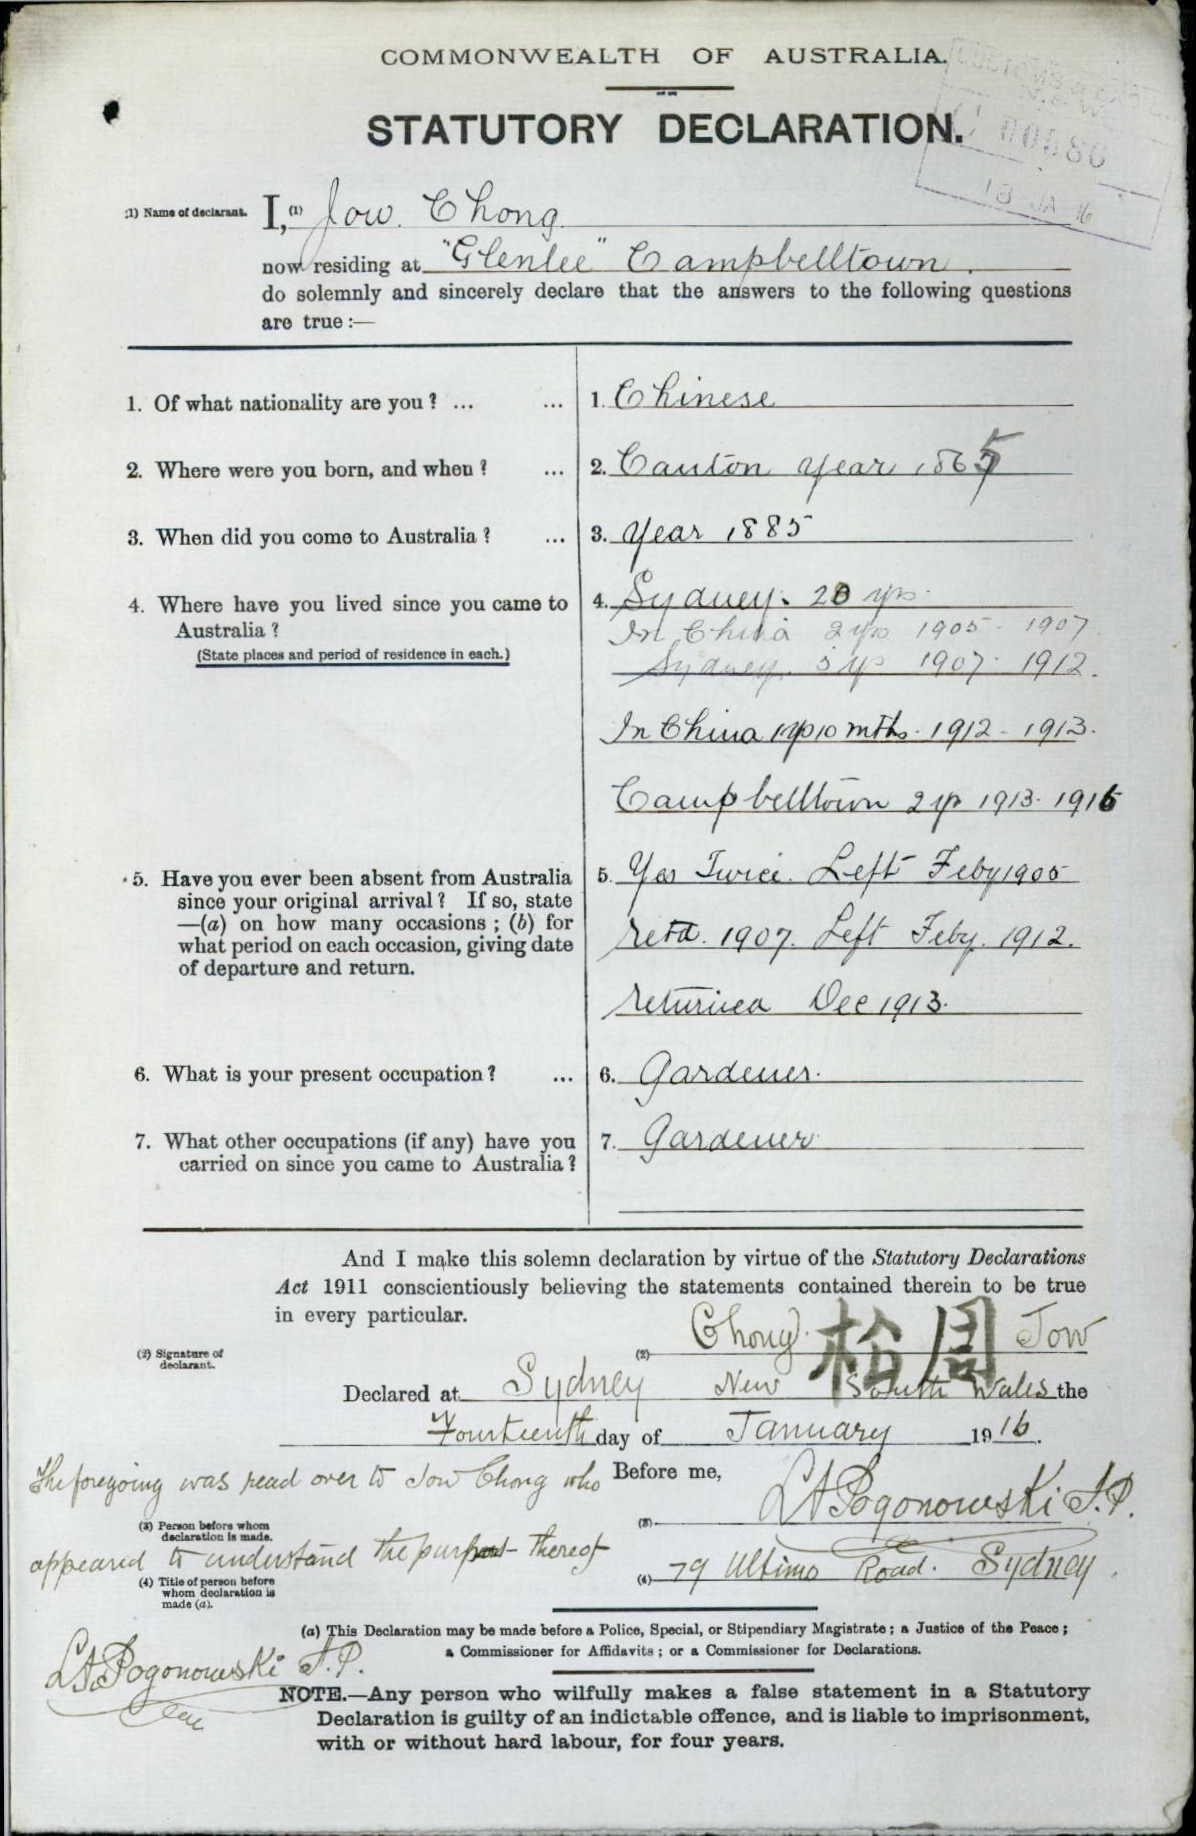 COMMONWEALTH OF AUSTRALIA.
STATUTORY DECLARATION.
00580
13 JA 16
(1) Name of declarant. I, (1) Jow. Chong
now residing at "Glenlee" Campbelltown.
do solemnly and sincerely declare that the answers to the following questions
are true :—
1. Of what nationality are you ? ... ... 1. Chinese
2. Where were you born, and when ? ... 2. Canton year 1865
3. When did you come to Australia ? ... 3. Year 1885
4. Where have you lived since you came to 4. Sydney. 20 yrs.
Australia ? In China 2 yrs 1905 - 1907
(State places and period of residence in each.) Sydney. 5 yrs 1907 - 1912.
In China 1 yr 10 mths. 1912 - 1913.
Campbelltown 2 yr 1913. 1916
5. Have you ever been absent from Australia 5. Yes Twice. Left Feby 1905
since your original arrival ? If so, state
—(a) on how many occasions ; (b) for
what period on each occasion, giving date retd. 1907. Left Feby. 1912.
of departure and return.
returned Dec 1913.
6. What is your present occupation ? ... 6. Gardener.
7. What other occupations (if any) have you 7. Gardener
carried on since you came to Australia ?
And I make this solemn declaration by virtue of the Statutory Declarations
Act 1911 conscientiously believing the statements contained therein to be true
in every particular.
(2) Signature of declarant. (2) Chong 松周 Jow
Declared at Sydney New South Wales the
Fourteenth day of January 1916.
The foregoing was read over to Jow Chong who Before me,
(3) Person before whom declaration is made. (3) L A Pogonowski J.P.
appeared to understand the purport thereof
(4) Title of person before whom declaration is made (a). (4) 79 Ultimo Road. Sydney.
(a) This Declaration may be made before a Police, Special, or Stipendiary Magistrate ; a Justice of the Peace ;
a Commissioner for Affidavits ; or a Commissioner for Declarations.
L A Pogonowski J.P.
NOTE.—Any person who wilfully makes a false statement in a Statutory
Declaration is guilty of an indictable offence, and is liable to imprisonment,
with or without hard labour, for four years.